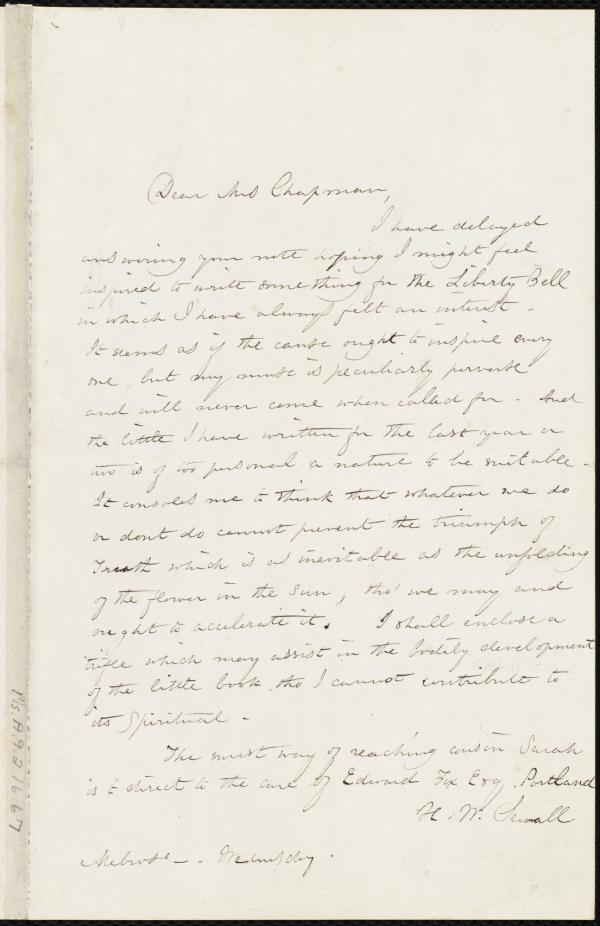 Dear Mrs Chapman,
I have delayed
answering your note hoping I might feel
inspired to write something for the Liberty Bell
in which I have always felt an interest -
It seems as if the cause ought to inspire every
one, but my muse is peculiarly perverse
and will never come when called for - And
the little I have written for the last year or
two is of too personal a nature to be suitable -
It consoles me to think that whatever we do
or dont do cannot prevent the triumph of
Truth which is as inevitable as the unfolding
of the flower in the sun, tho' we may and
ought to accelerate it. I shall enclose a
trifle which may assist in the bodily development
of the little book tho I cannot contribute to
its Spiritual -
The surest way of reaching cousin Sarah
is to direct to the care of Edward Fox Esq. Portland
H. W. Sewall
Melrose - Wednesday.
Ms.A.9.2